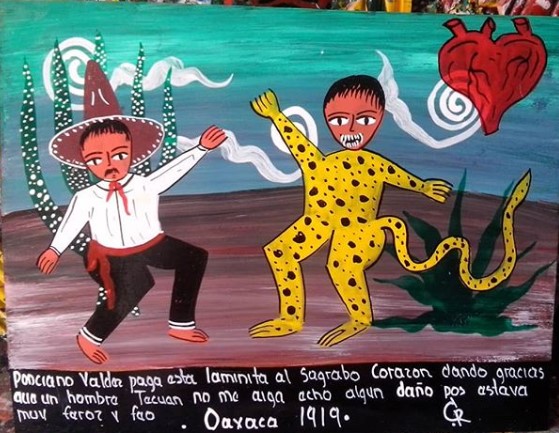 Ponciano Valdez paga esta laminita al Sagrabo Corazon dando gracias
que un hombre Tecuan no me aiga echo algun daño pos estava
muy feroz y feo . Oaxaca 1919.